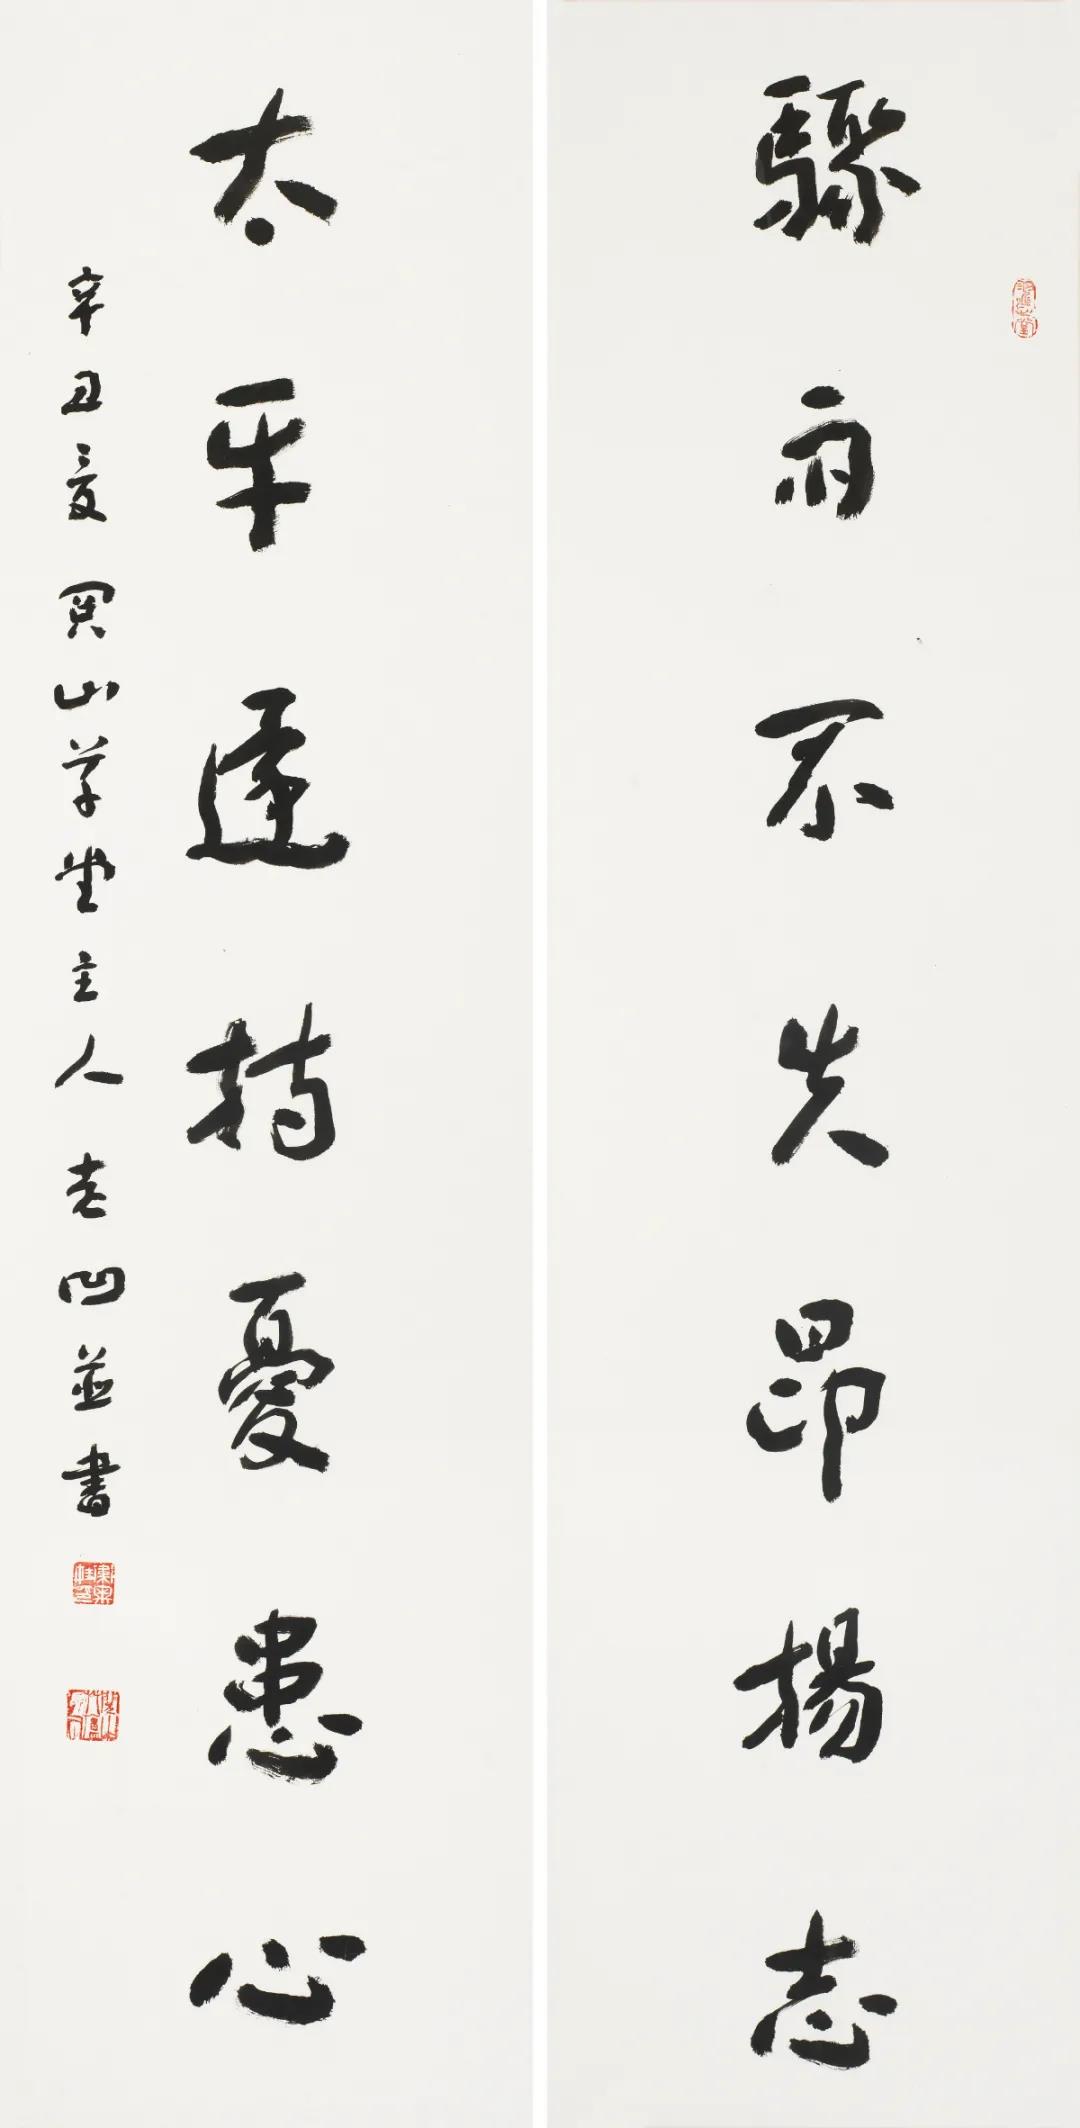 驟雨不失昂揚志
太平還持憂患心
辛丑夏關山草堂主人老凹並書